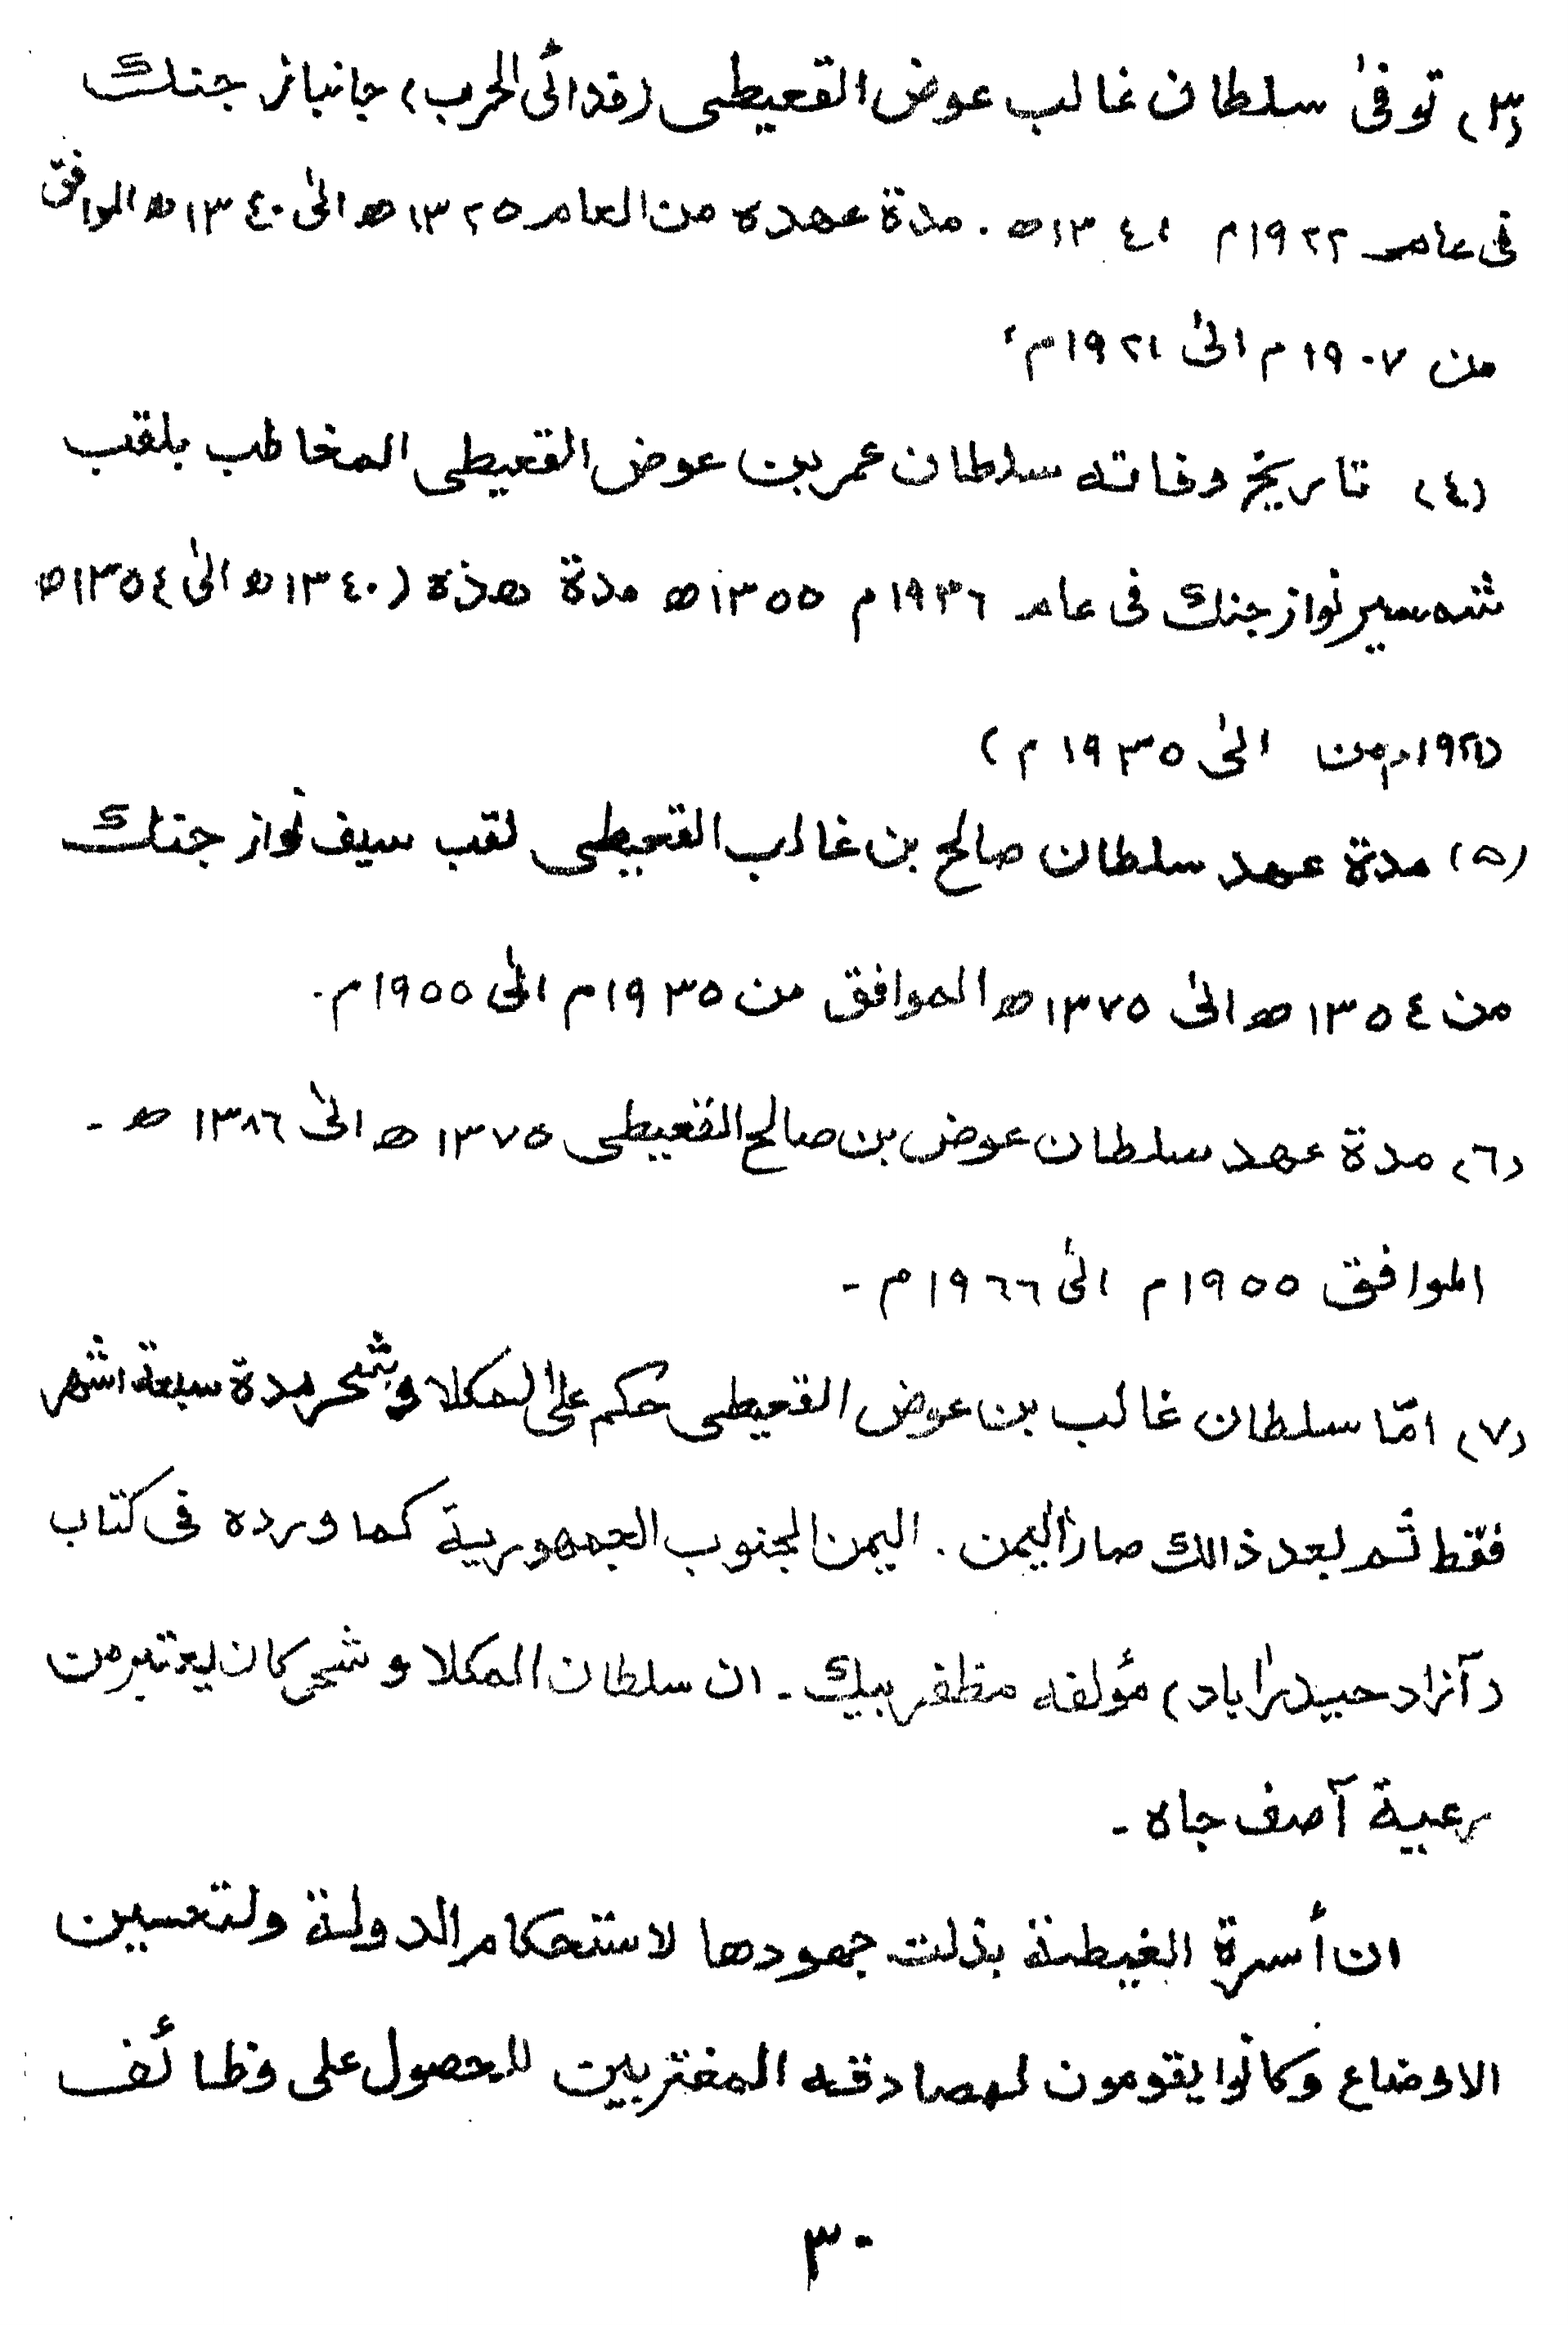 (٣) توفىٰ سلطان غالب عوض القعيطى (فدائى الحرب) جانباز جنگ
فى عامر ١٩٢٢م ١٣٤١ھ . مدة عهده من العامر ١٣٢٥ھ الىٰ ١٣٤٠ھ الموافق
من ١٩٠٧م الىٰ ١٩٢١م
(٤) تاريخ وفاته سلطان عمر بن عوض القعيطى المخاطب بلقب
شه سير نواز جنگ فى عام ١٩٣٦م ١٣٥٥ھ مدة هذة (١٣٤٠ھ الىٰ ١٣٥٤ھ
١٩٢١م من الىٰ ١٩٣٥م)
(٥) مدة عهد سلطان صالح بن غالب القعيطى لقب سيف نواز جنگ
من ١٣٥٤ھ الىٰ ١٣٧٥ھ الموافق من ١٩٣٥م الىٰ ١٩٥٥م.
(٦) مدة عهد سلطان عوض بن صالح القعيطى ١٣٧٥ھ الىٰ ١٣٨٦ھ -
الموافق ١٩٥٥م الىٰ ١٩٦٦م -
(٧) امّا سلطان غالب بن عوض القعيطى حكم على المكلا وشحر مدة سبعة اشهر
فقط ثم بعد ذالك صار اليمن . اليمن الجنوب الجمهورية كما ورده فى كتاب
(آزاد حيدراباد) مؤلفه مظفر بيگ - ان سلطان المكلا و شحر كان يعتبر من
رعية آصف جاه -
ان أسرة الغيطة بذلت جهودها لاستحكام الدولة ولتحسين
الاوضاع وكانوا يقومون لمصادقه المغتربين للحصول على وظائف
٣٠